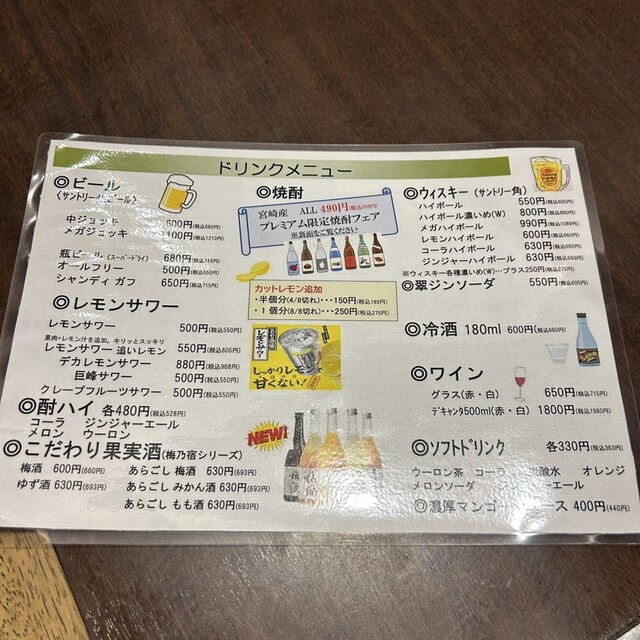 ドリンクメニュー
◎ビール
中ジョッキ 600円(税込660円)
メガジョッキ
瓶ビール(スーパードライ) 680円(税込748円)
オールフリー 500円(税込550円)
シャンディ ガフ 650円(税込715円)
◎レモンサワー
レモンサワー 500円(税込550円)
果肉+レモン汁を追加。キリッとスッキリ
レモンサワー 追いレモン 550円(税込605円)
デカレモンサワー 880円(税込968円)
巨峰サワー 500円(税込550円)
クレープフルーツサワー 500円(税込550円)
◎酎ハイ 各480円(税込528円)
コーラ ジンジャーエール
メロン ウーロン
◎こだわり果実酒(梅乃宿シリーズ)
梅酒 600円(660円) あらごし 梅酒 630円(693円)
ゆず酒 630円(693円) あらごし みかん酒 630円(693円)
あらごし もも酒 630円(693円)
◎焼酎
宮崎産 ALL 490円(税込539円)
プレミアム限定焼酎フェア
※裏面をご覧ください
カットレモン追加
・半個分(4/8切れ)・・・150円(税込165円)
・1個分(8/8切れ)・・・250円(税込275円)
レモンサワー
しっかりレモン
甘くない!
NEW!
◎ウィスキー(サントリー角)
ハイボール 550円(税込605円)
ハイボール濃いめ(W) 800円(税込880円)
メガハイボール 990円(税込1089円)
レモンハイボール 600円(税込660円)
コーラハイボール 630円(税込693円)
ジンジャーハイボール 630円(税込693円)
※ウィスキー各種濃いめ(W)・・・プラス250円(税込275円)
◎翠ジンソーダ 550円(税込605円)
◎冷酒 180ml 600円(税込660円)
◎ワイン
グラス(赤・白) 650円(税込715円)
デキャンタ500ml(赤・白) 1800円(税込1980円)
◎ソフトドリンク 各330円(税込363円)
ウーロン茶 コーラ 酸水 オレンジ
メロンソーダ エール
◎濃厚マンゴー ース 400円(440円)